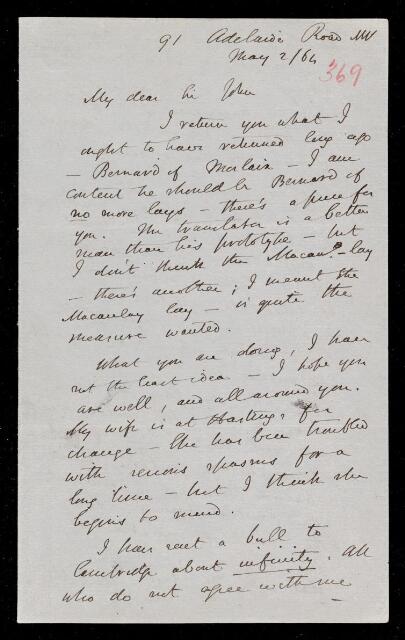 91 Adelaide Road NW
May 2/64
369
My dear Sir John
I return you what I
ought to have returned long ago
— Bernard of Morlaix — I am
content he should be Bernard of
no more lays — there's a pun for
you. The translator is a better
man than his prototype — but
I don't think the Macau?-lay
— there's another; I meant the
Macaulay lay — is quite the
measure wanted.
What you are doing, I have
not the least idea — I hope you
are well, and all around you.
My wife is at Hastings for
change — She has been troubled
with spasms for a
long time — but I think she
begins to mend.
I have sent a bull to
Cambridge about infinity. All
who do not agree with me